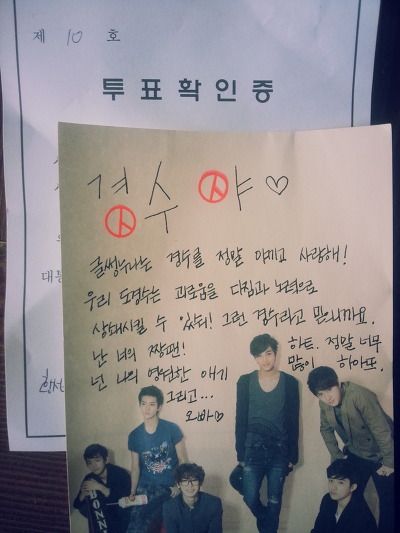 제 10 호
투표확인증
경수야♡
글썽누나는 경수를 정말 아끼고 사랑해!
우리 도경수는 괴로움을 다짐과 노력으로
상쇄시킬 수 있숴! 그런 경수라고 믿으니까요.
난 너의 짱팬! 하트. 정말 너무
넌 나의 영원한 애기 많이 하아뜨.
그리고...
오빠♡